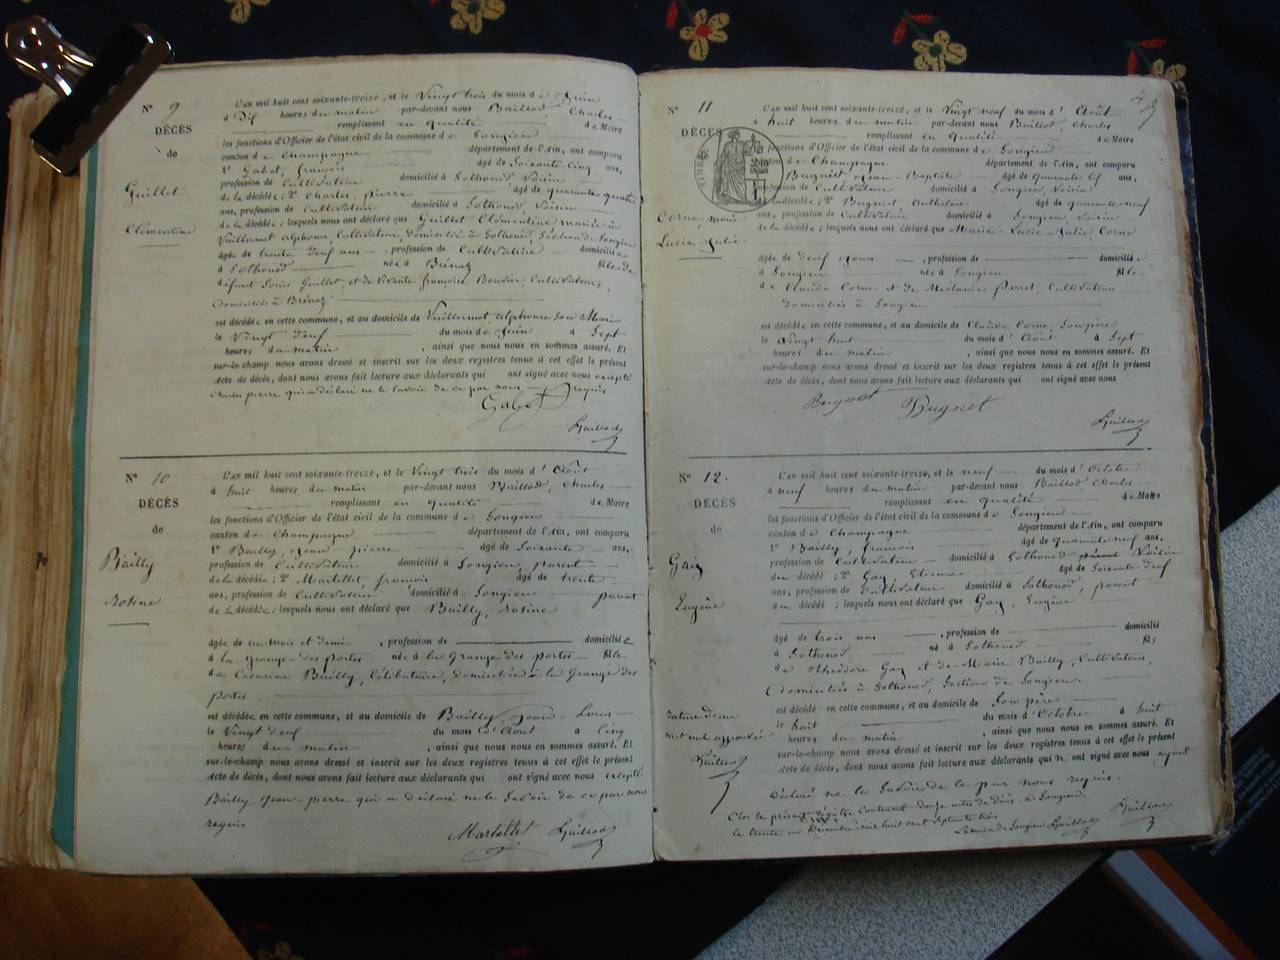 N° 9
DÉCÈS
de
Guillet
Clémentine
L'an mil huit cent soixante-treize, et le Vingt trois du mois de Juin
à Dix heures du matin par-devant nous Baillod, Charles
remplissant en qualité de Maire
les fonctions d'Officier de l'état civil de la commune de Songieu
canton de Champagne département de l'Ain, ont comparu
1° Gabet, françois âgé de Soixante cinq ans,
profession de Cultivateur domicilié à Sothonod Voisin
de la décédée; 2° Charles, pierre âgé de quarante quatre
ans, profession de Cultivateur domicilié à Sothonod, Voisin
de la décédée; lesquels nous ont déclaré que Guillet Clémentine mariée à
Vuillermot alphonse, Cultivateur, domicilié à Sothonod, Section de Songieu
âgée de trente neuf ans, profession de Cultivatrice domiciliée
à Sothonod née à Brénaz fille de
défunt Louis Guillet, et de Vivante françoise Bouvier, Cultivateurs,
domiciliés à Brénaz
est décédée en cette commune, et au domicile de Vuillermot alphonse Son Mari
le Vingt deux du mois de Juin à Sept
heures du matin, ainsi que nous nous en sommes assuré. Et
sur-le-champ nous avons dressé et inscrit sur les deux registres tenus à cet effet le présent
acte de décès, dont nous avons fait lecture aux déclarants qui ont signé avec nous excepté
Charles pierre qui a déclaré ne le Savoir de ce par nous requis
Gabet
Baillod
N° 10
DÉCÈS
de
Bailly
Rosine
L'an mil huit cent soixante-treize, et le Vingt trois du mois d'Août
à huit heures du matin par-devant nous Baillod, Charles
remplissant en qualité de Maire
les fonctions d'Officier de l'état civil de la commune de Songieu
canton de Champagne département de l'Ain, ont comparu
1° Bailly, Jean pierre âgé de Soixante ans,
profession de Cultivateur domicilié à Songieu, parent
de la décédée; 2° Martellet, françois âgé de trente
ans, profession de Cultivateur domicilié à Songieu parent
de la décédée; lesquels nous ont déclaré que Bailly, Rosine
âgée de un mois et demi, profession de domiciliée
à la Grange des portes née à la Grange des portes fille
de Césarine Bailly, Célibataire, domiciliée à la Grange des
portes.
est décédée en cette commune, et au domicile de Bailly, Jean-Louis
le Vingt deux du mois d'Août à Cinq
heures du matin, ainsi que nous nous en sommes assuré. Et
sur-le-champ nous avons dressé et inscrit sur les deux registres tenus à cet effet le présent
acte de décès, dont nous avons fait lecture aux déclarants qui ont signé avec nous excepté
Bailly Jean-pierre qui a déclaré ne le Savoir de ce par nous
requis
Martellet Baillod
N° 11
DÉCÈS
Corne, Marie
Lucie-Julie
L'an mil huit cent soixante-treize, et le Vingt neuf du mois d'Août
à huit heures du matin par-devant nous Baillod, Charles
remplissant en qualité de Maire
fonctions d'Officier de l'état civil de la commune de Songieu
canton de Champagne département de l'Ain, ont comparu
Bugnet Jean-Baptiste âgé de quarante six ans,
profession de Cultivateur domicilié à Songieu, Voisin
la décédée; 2° Bugnet, Anthelme âgé de quarante neuf
ans, profession de Cultivateur domicilié à Songieu Voisin
de la décédée; lesquels nous ont déclaré que Marie-Lucie-Julie Corne
âgée de neuf jours, profession de domiciliée
à Songieu née à Songieu fille
de Claude Corne et de Mélanie Perret, Cultivateurs
domiciliés à Songieu
est décédée en cette commune, et au domicile de Claude Corne, Son père
le Vingt huit du mois d'Août à Sept
heures du matin, ainsi que nous nous en sommes assuré. Et
sur-le-champ nous avons dressé et inscrit sur les deux registres tenus à cet effet le présent
acte de décès, dont nous avons fait lecture aux déclarants qui ont signé avec nous
Bugnet Bugnet
Baillod
N° 12.
DÉCÈS
de
Gay
Eugène
L'an mil huit cent soixante-treize, et le neuf du mois d'Octobre
à neuf heures du matin par-devant nous Baillod Charles
remplissant en qualité de Maire
les fonctions d'Officier de l'état civil de la commune de Songieu
canton de Champagne département de l'Ain, ont comparu
1° Bailly, françois âgé de quarante neuf ans,
profession de Cultivateur domicilié à Sothonod Voisin
du décédé; 2° Gay, Etienne âgé de Soixante neuf
ans, profession de Cultivateur domicilié à Sothonod, parent
du décédé; lesquels nous ont déclaré que Gay, Eugène
âgé de trois ans, profession de domicilié
à Sothonod né à Sothonod fils
de Théodore Gay et de Marie Bailly, Cultivateurs,
domiciliés à Sothonod, Section de Songieu.
est décédé en cette commune, et au domicile de Son père
le huit du mois d'Octobre à huit
heures du matin, ainsi que nous nous en sommes assuré. Et
sur-le-champ nous avons dressé et inscrit sur les deux registres tenus à cet effet le présent
acte de décès, dont nous avons fait lecture aux déclarants qui n'ont signé avec nous ayant
déclaré ne le Savoir de ce par nous requis.
Baillod
rature d'un
mot nul approuvée
Baillod
Clos le présent registre Contenant douze actes de décès à Songieu
le trente un Décembre mil huit cent septante trois
Le maire de Songieu Baillod